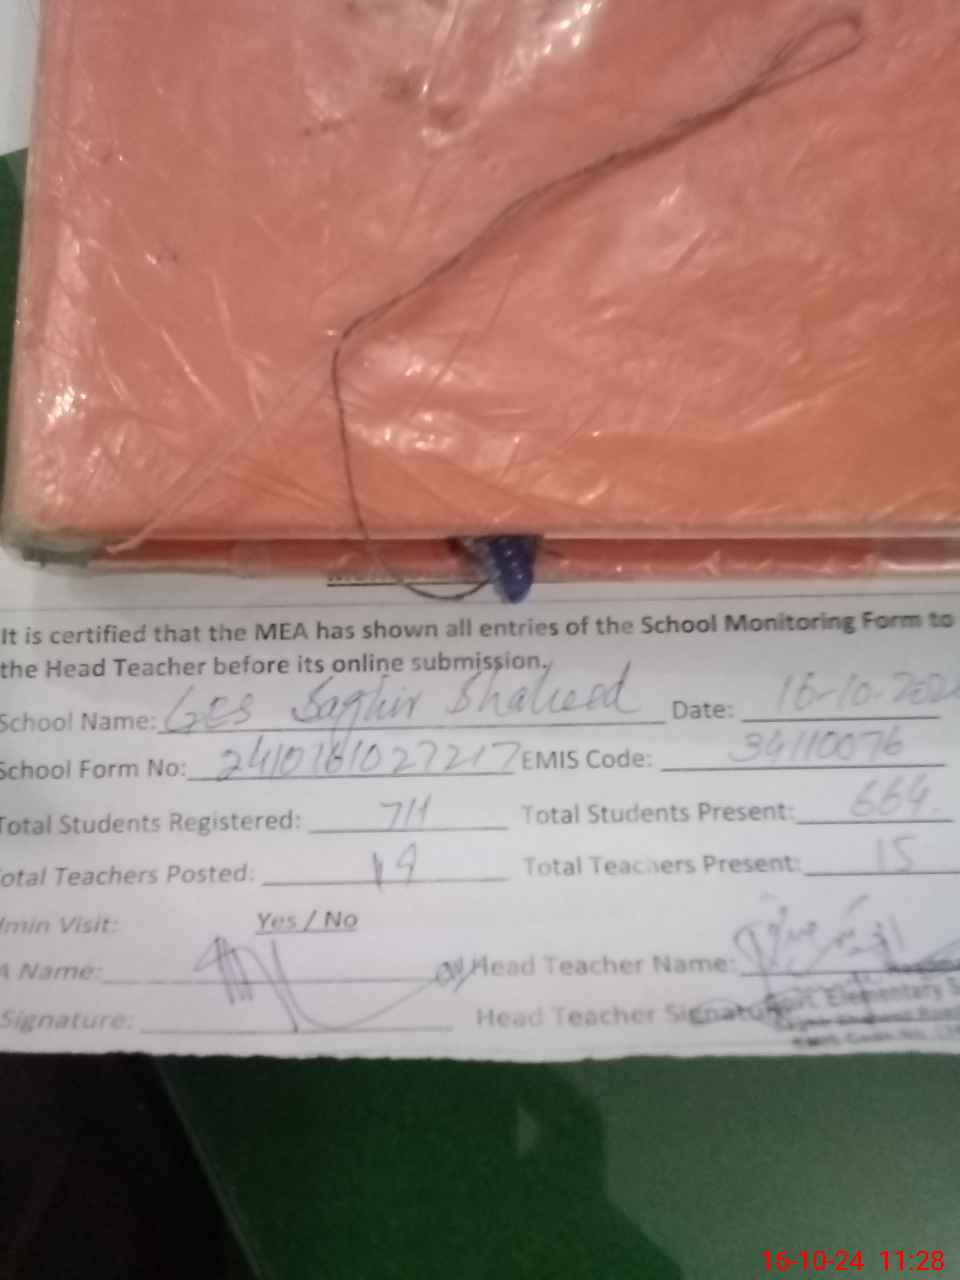 It is certified that the MEA has shown all entries of the School Monitoring Form to
the Head Teacher before its online submission.
School Name: GES Saghir Shaheed Date: 16-10-202
School Form No: 2410161027217 EMIS Code: 34110076
Total Students Registered: 711 Total Students Present: 664
otal Teachers Posted: 19 Total Teachers Present: 15
dmin Visit: Yes / No
A Name: Head Teacher Name:
Signature: Head Teacher Signature
Elementary S
16-10-24 11:28